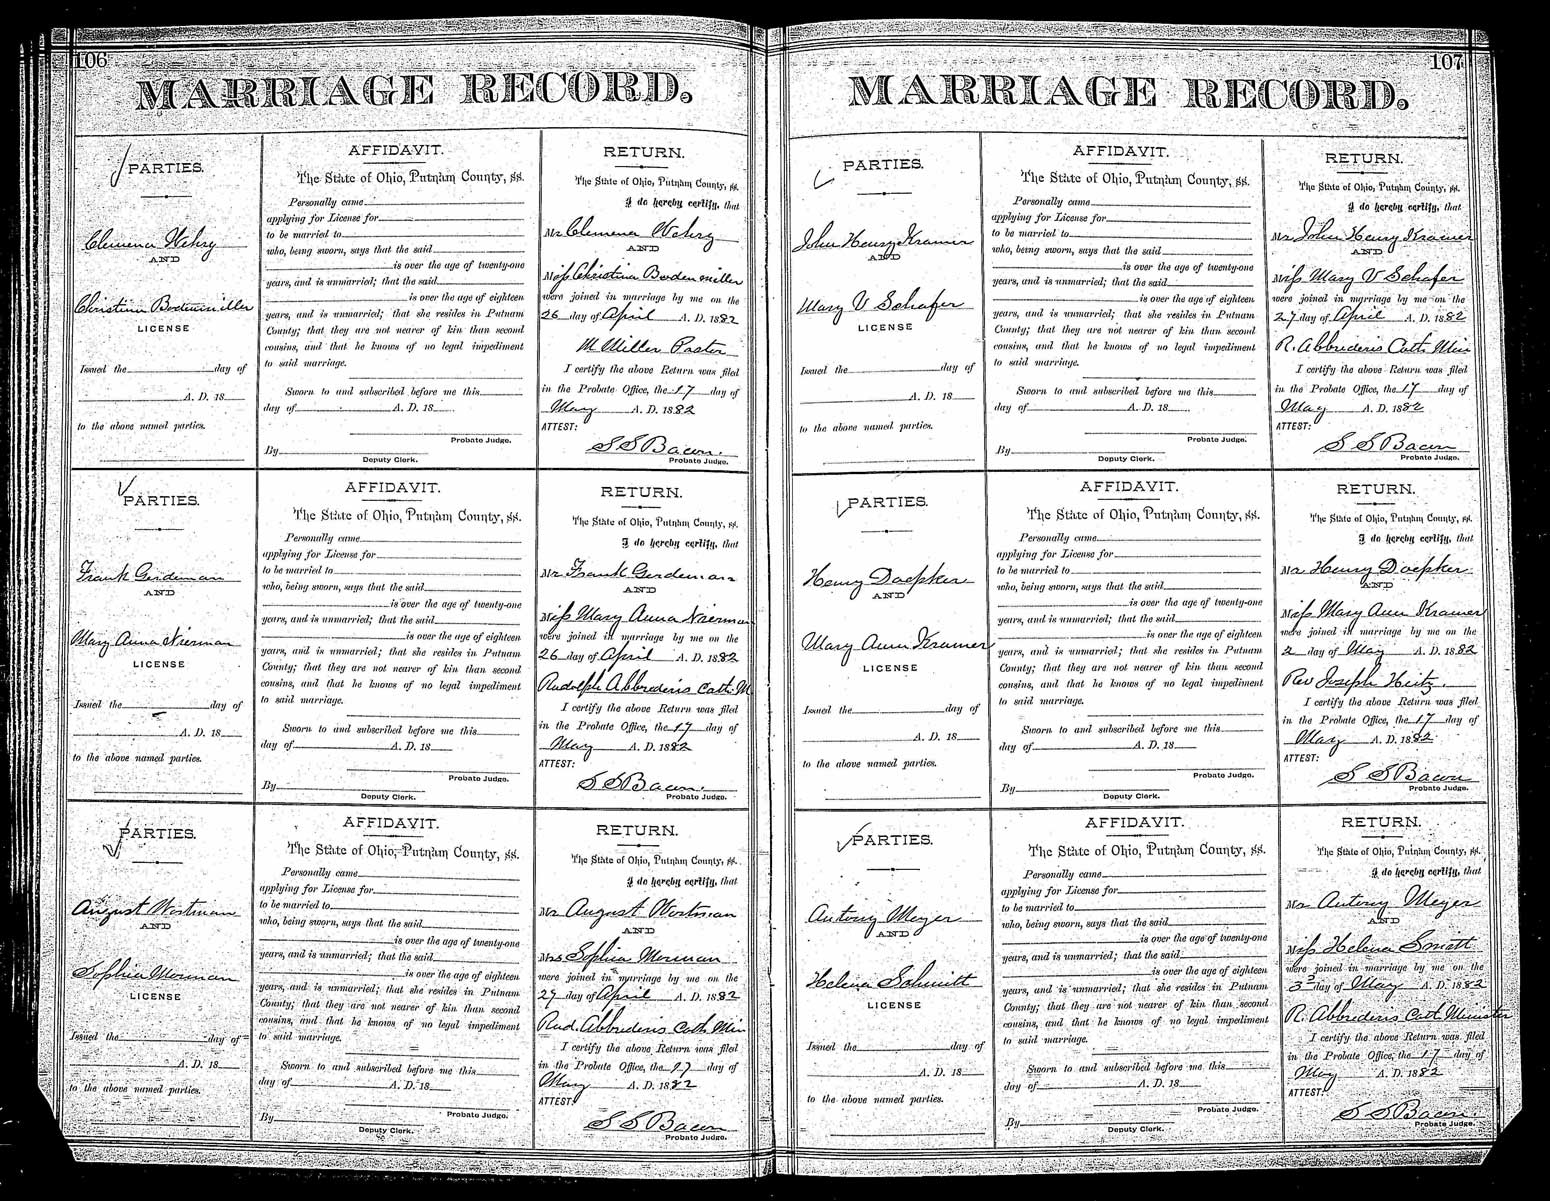 106
MARRIAGE RECORD.
PARTIES.
Clemena Wehry
AND
Christina Bodenmiller
LICENSE
Issued the day of
A. D. 18
to the above named parties.
AFFIDAVIT.
The State of Ohio, Putnam County, ss.
Personally came
applying for License for
to be married to
who, being sworn, says that the said
is over the age of twenty-one
years, and is unmarried; that the said
is over the age of eighteen
years, and is unmarried; that she resides in Putnam
County; that they are not nearer of kin than second
cousins, and that he knows of no legal impediment
to said marriage.
Sworn to and subscribed before me this
day of A. D. 18
Probate Judge.
By
Deputy Clerk.
RETURN.
The State of Ohio, Putnam County, ss.
I do hereby certify, that
Mr Clemena Wehry
AND
Miss Christina Bodenmiller
were joined in marriage by me on the
26 day of April A. D. 1882
M Miller Pastor
I certify the above Return was filed
in the Probate Office, the 17 day of
May A. D. 1882
ATTEST:
S S Bacon.
Probate Judge.
PARTIES.
Frank Gerdeman
AND
Mary Anna Nierman
LICENSE
Issued the day of
A. D. 18
to the above named parties.
AFFIDAVIT.
The State of Ohio, Putnam County, ss.
Personally came
applying for License for
to be married to
who, being sworn, says that the said
is over the age of twenty-one
years, and is unmarried; that the said
is over the age of eighteen
years, and is unmarried; that she resides in Putnam
County; that they are not nearer of kin than second
cousins, and that he knows of no legal impediment
to said marriage.
Sworn to and subscribed before me this
day of A. D. 18
Probate Judge.
By
Deputy Clerk.
RETURN.
The State of Ohio, Putnam County, ss.
I do hereby certify, that
Mr Frank Gerdeman
AND
Miss Mary Anna Nierman
were joined in marriage by me on the
26 day of April A. D. 1882
Rudolph Abbrederis Cath. M
I certify the above Return was filed
in the Probate Office, the 17 day of
May A. D. 1882
ATTEST:
S S Bacon.
Probate Judge.
PARTIES.
August Wortman
AND
Sophia Morman
LICENSE
Issued the day of
A. D. 18
to the above named parties.
AFFIDAVIT.
The State of Ohio, Putnam County, ss.
Personally came
applying for License for
to be married to
who, being sworn, says that the said
is over the age of twenty-one
years, and is unmarried; that the said
is over the age of eighteen
years, and is unmarried; that she resides in Putnam
County; that they are not nearer of kin than second
cousins, and that he knows of no legal impediment
to said marriage.
Sworn to and subscribed before me this
day of A. D. 18
Probate Judge.
By
Deputy Clerk.
RETURN.
The State of Ohio, Putnam County, ss.
I do hereby certify, that
Mr August Wortman
AND
Mrs Sophia Morman
were joined in marriage by me on the
27 day of April A. D. 1882
Rud. Abbrederis Cath Min
I certify the above Return was filed
in the Probate Office, the 17 day of
May A. D. 1882
ATTEST:
S S Bacon
Probate Judge.
107
MARRIAGE RECORD.
PARTIES.
John Henry Kramer
AND
Mary V Schafer
LICENSE
Issued the day of
A. D. 18
to the above named parties.
AFFIDAVIT.
The State of Ohio, Putnam County, ss.
Personally came
applying for License for
to be married to
who, being sworn, says that the said
is over the age of twenty-one
years, and is unmarried; that the said
is over the age of eighteen
years, and is unmarried; that she resides in Putnam
County; that they are not nearer of kin than second
cousins, and that he knows of no legal impediment
to said marriage.
Sworn to and subscribed before me this
day of A. D. 18
Probate Judge.
By
Deputy Clerk.
RETURN.
The State of Ohio, Putnam County, ss.
I do hereby certify, that
Mr John Henry Kramer
AND
Miss Mary V Schafer
were joined in marriage by me on the
27 day of April A. D. 1882
R. Abbrederis Cath Min
I certify the above Return was filed
in the Probate Office, the 17 day of
May A. D. 1882
ATTEST:
S S Bacon
Probate Judge.
PARTIES.
Henry Doepker
AND
Mary Ann Kramer
LICENSE
Issued the day of
A. D. 18
to the above named parties.
AFFIDAVIT.
The State of Ohio, Putnam County, ss.
Personally came
applying for License for
to be married to
who, being sworn, says that the said
is over the age of twenty-one
years, and is unmarried; that the said
is over the age of eighteen
years, and is unmarried; that she resides in Putnam
County; that they are not nearer of kin than second
cousins, and that he knows of no legal impediment
to said marriage.
Sworn to and subscribed before me this
day of A. D. 18
Probate Judge.
By
Deputy Clerk.
RETURN.
The State of Ohio, Putnam County, ss.
I do hereby certify, that
Mr Henry Doepker
AND
Miss Mary Ann Kramer
were joined in marriage by me on the
2 day of May A. D. 1882
Rev Joseph Heitz.
I certify the above Return was filed
in the Probate Office, the 17 day of
May A. D. 1882
ATTEST:
S S Bacon
Probate Judge.
PARTIES.
Antony Meyer
AND
Helena Schmitt
LICENSE
Issued the day of
A. D. 18
to the above named parties.
AFFIDAVIT.
The State of Ohio, Putnam County, ss.
Personally came
applying for License for
to be married to
who, being sworn, says that the said
is over the age of twenty-one
years, and is unmarried; that the said
is over the age of eighteen
years, and is unmarried; that she resides in Putnam
County; that they are not nearer of kin than second
cousins, and that he knows of no legal impediment
to said marriage.
Sworn to and subscribed before me this
day of A. D. 18
Probate Judge.
By
Deputy Clerk.
RETURN.
The State of Ohio, Putnam County, ss.
I do hereby certify, that
Mr Antony Meyer
AND
Miss Helena Smitt
were joined in marriage by me on the
3 day of May A. D. 1882
R. Abbrederis Cath Minister
I certify the above Return was filed
in the Probate Office, the 17 day of
May A. D. 1882
ATTEST:
S S Bacon.
Probate Judge.